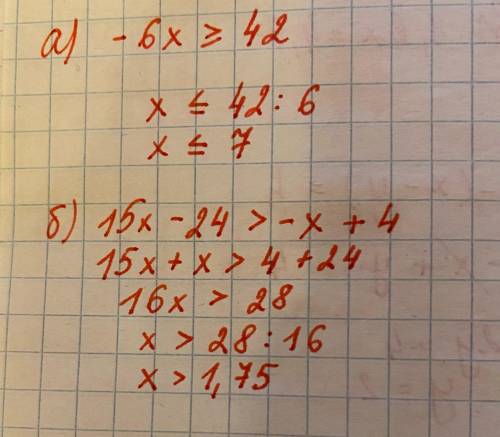 а) - 6x ≥ 42
x ≤ 42 : 6
x ≤ 7
б) 15x - 24 > - x + 4
15x + x > 4 + 24
16x > 28
x > 28 : 16
x > 1,75